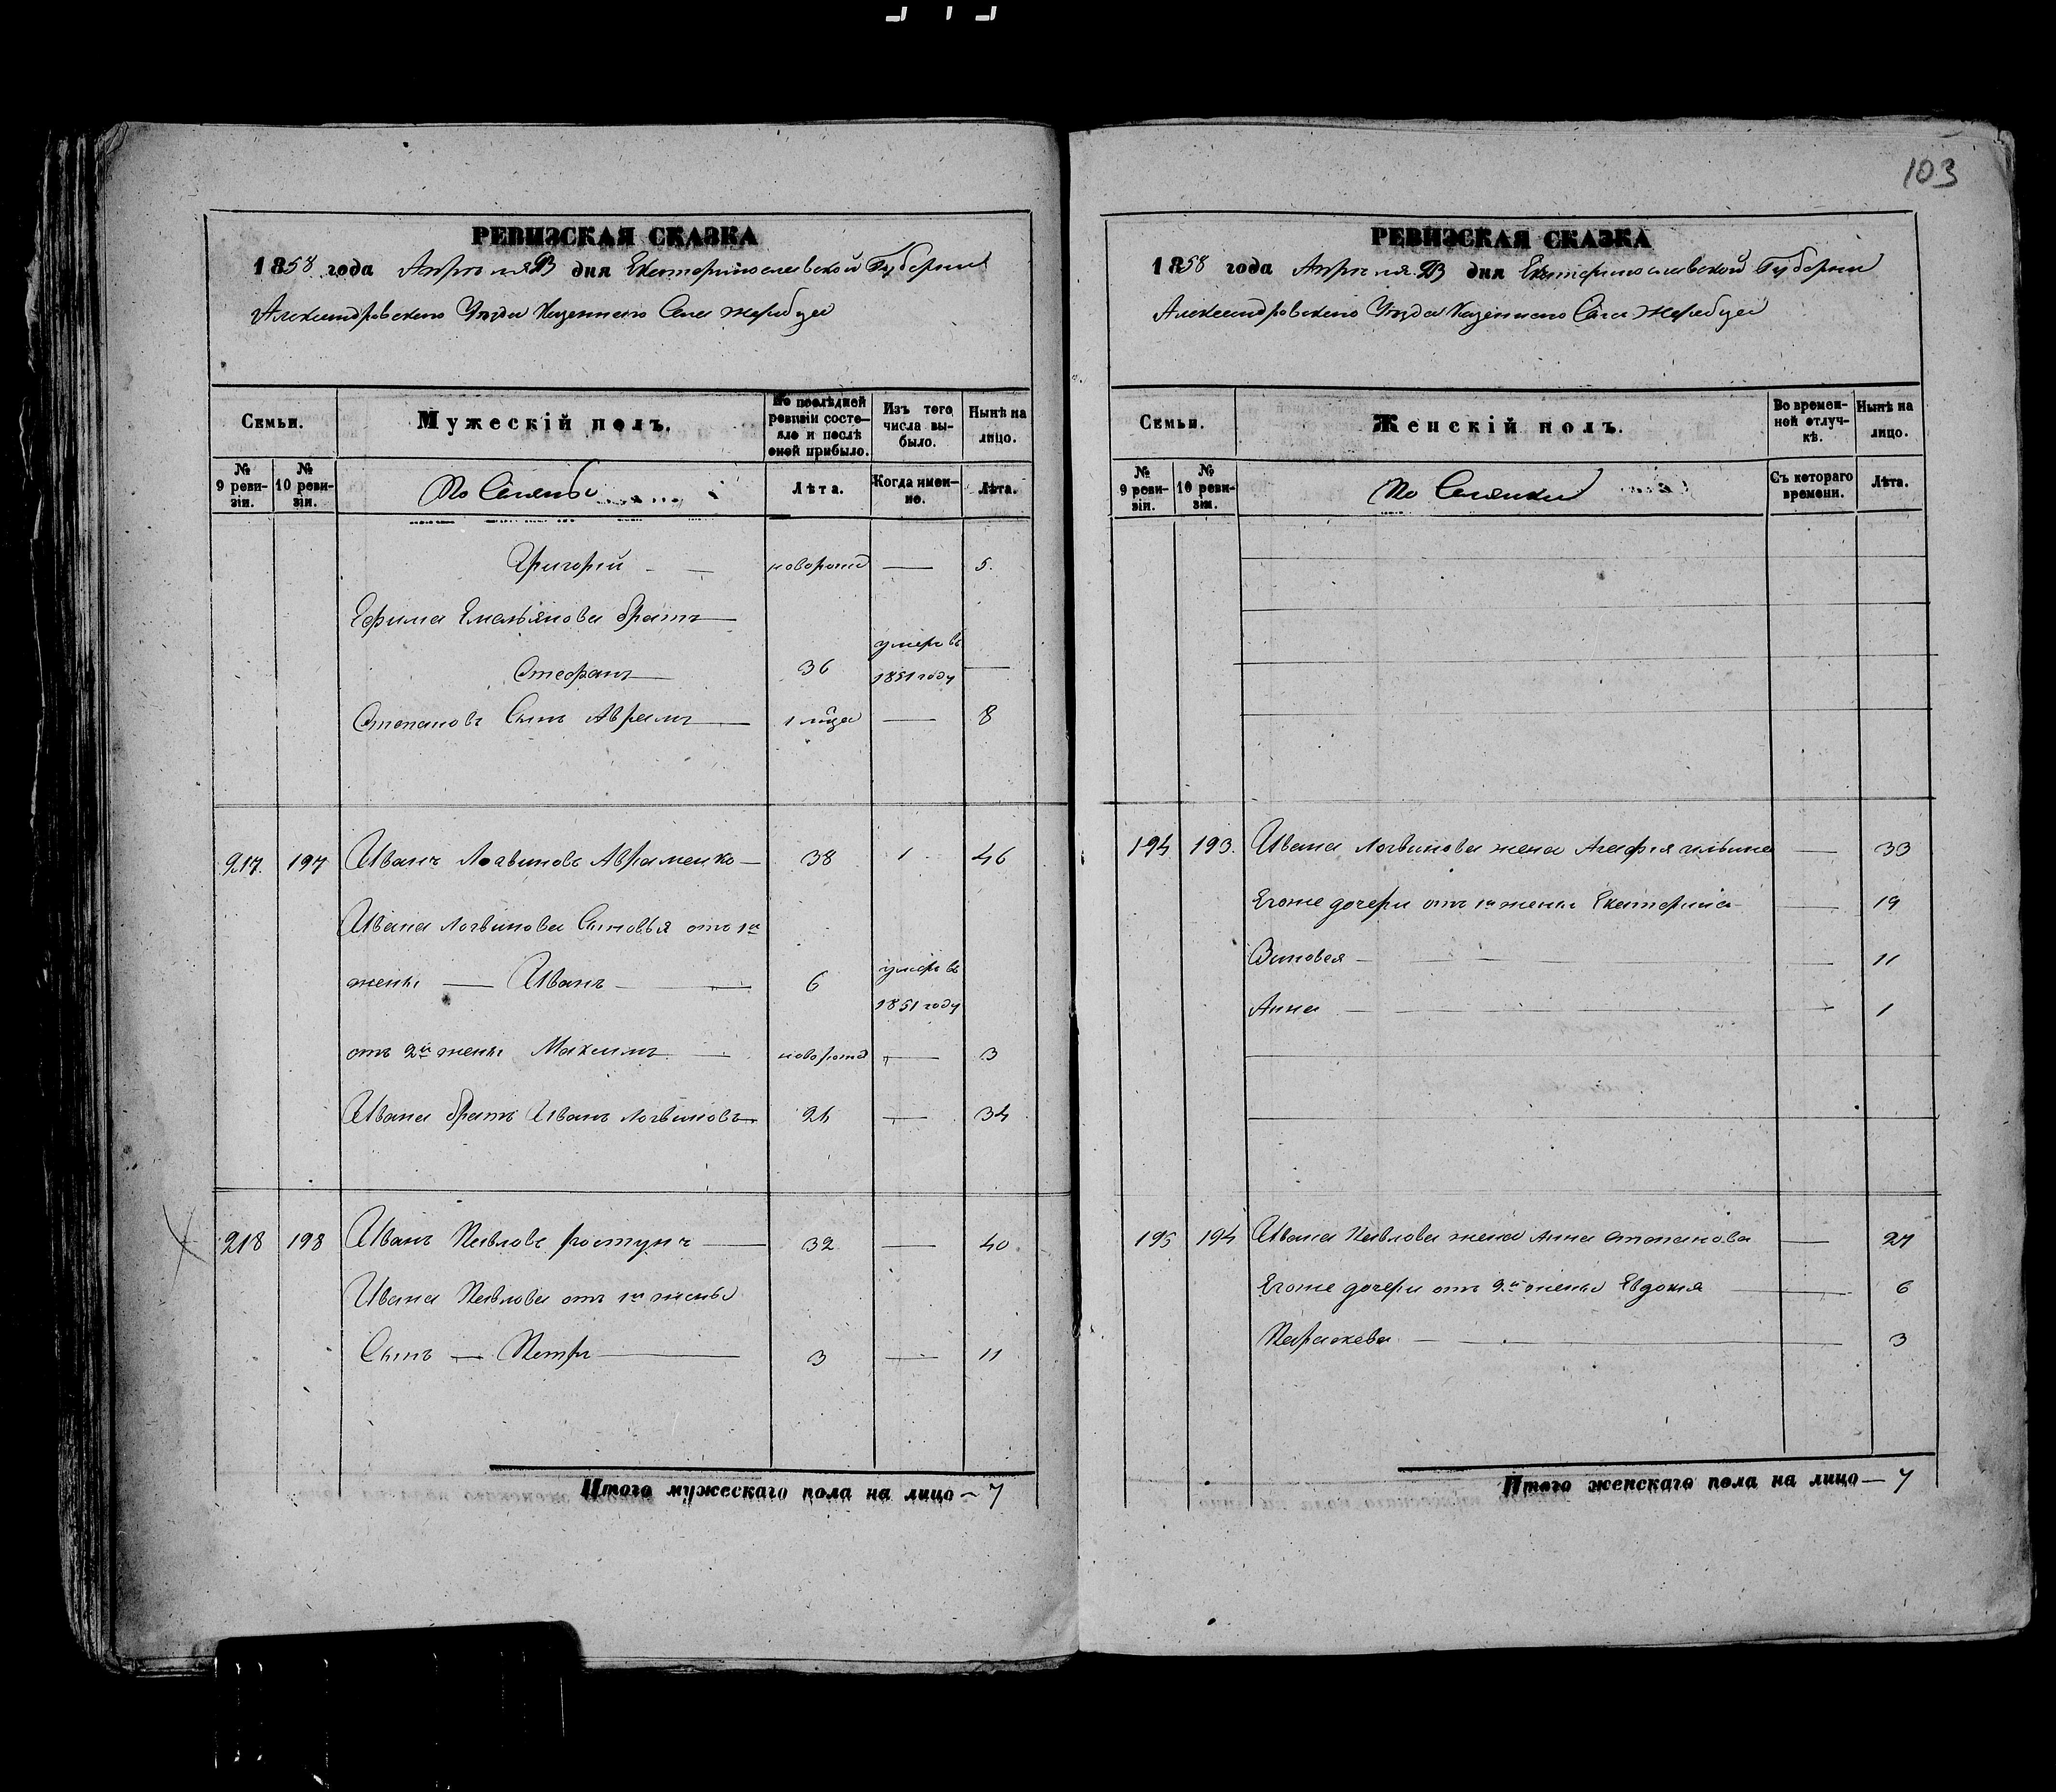 103
РЕВИЗСКАЯ СКАЗКА
1858 года Апреля дня Екатеринославской Губернии
Александровского Уезда Казенного Села Жеребца
Семьи.
Мужескій полъ.
По послѣдней ревизіи состояло и послѣ оной прибыло.
Изъ того числа выбыло.
Нынѣ на лицо.
№ 9 ревизіи.
№ 10 ревизіи.
Лѣта.
Когда именно.
Лѣта.
Григорій новорожд — 5.
Ефима Емельянова братъ
Стефанъ 36 умеръ въ 1851 году —
Степановъ Сынъ Аврамъ 1 мѣсца — 8
217. 197 Иванъ Логвиновъ Авраменко 38 1 46
Ивана Логвинова Сыновья отъ 1й
жены — Иванъ 6 умеръ въ 1851 году
отъ 2й жены Максимъ новорожд — 3
Ивана братъ Иванъ Логвиновъ 26 — 34
218 198 Иванъ Павловъ 32 — 40
Ивана Павлова отъ 1й жены
Сынъ — Петръ 3 — 11
Итого мужескаго пола на лицо — 7
РЕВИЗСКАЯ СКАЗКА
1858 года Апреля дня Екатеринославской Губернии
Александровского Уезда Казенного Села Жеребца
Семьи.
Женскій полъ.
Во временной отлучкѣ.
Нынѣ на лицо.
№ 9 ревизіи.
№ 10 ревизіи.
Съ котораго времени.
Лѣта.
194 193. Ивана Логвинова жена Агафія Ильина — 33
Егоже дочери отъ 1й жены Екатерина — 19
— 11
Анна — 1
195 194 Ивана Павлова жена Анна Степанова — 27
Егоже дочери отъ 2й жены Евдокия — 6
Параскева — 3
Итого женскаго пола на лицо — 7